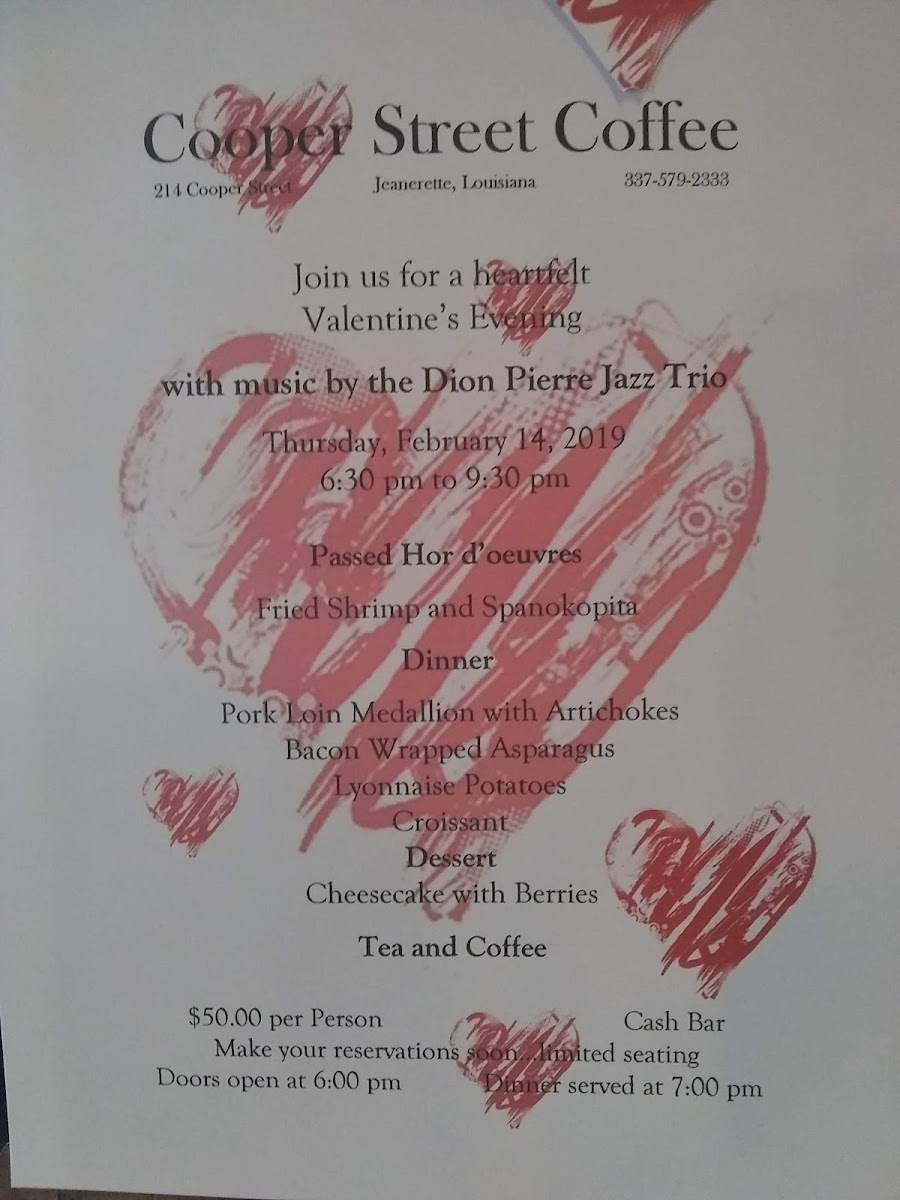 Cooper Street Coffee
214 Cooper Street Jeanerette, Louisiana 337-579-2333
Join us for a heartfelt
Valentine's Evening
with music by the Dion Pierre Jazz Trio
Thursday, February 14, 2019
6:30 pm to 9:30 pm
Passed Hor d'oeuvres
Fried Shrimp and Spanokopita
Dinner
Pork Loin Medallion with Artichokes
Bacon Wrapped Asparagus
Lyonnaise Potatoes
Croissant
Dessert
Cheesecake with Berries
Tea and Coffee
$50.00 per Person Cash Bar
Make your reservations soon...limited seating
Doors open at 6:00 pm Dinner served at 7:00 pm